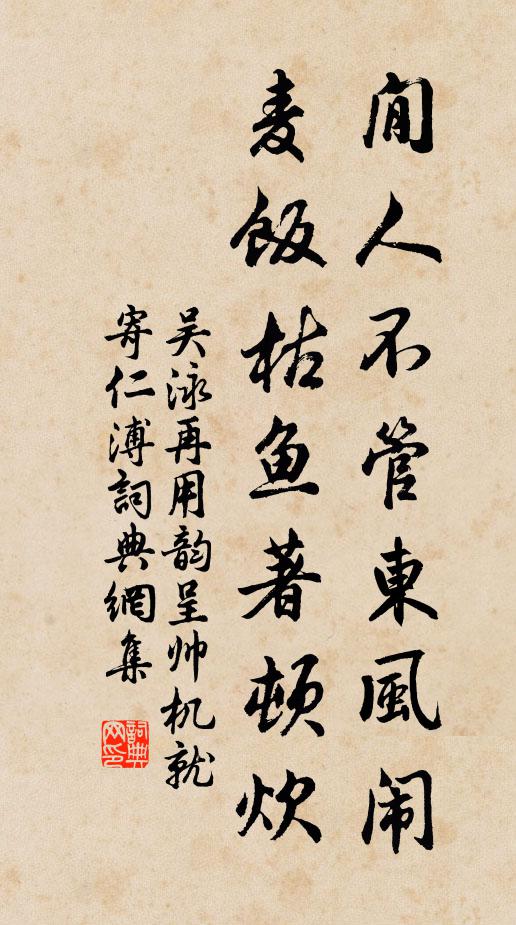 閒人不管東風闹
麦飯枯鱼著頓炊
吴泳再用韵呈帅机就
寄仁溥詞典網集
詞典网印